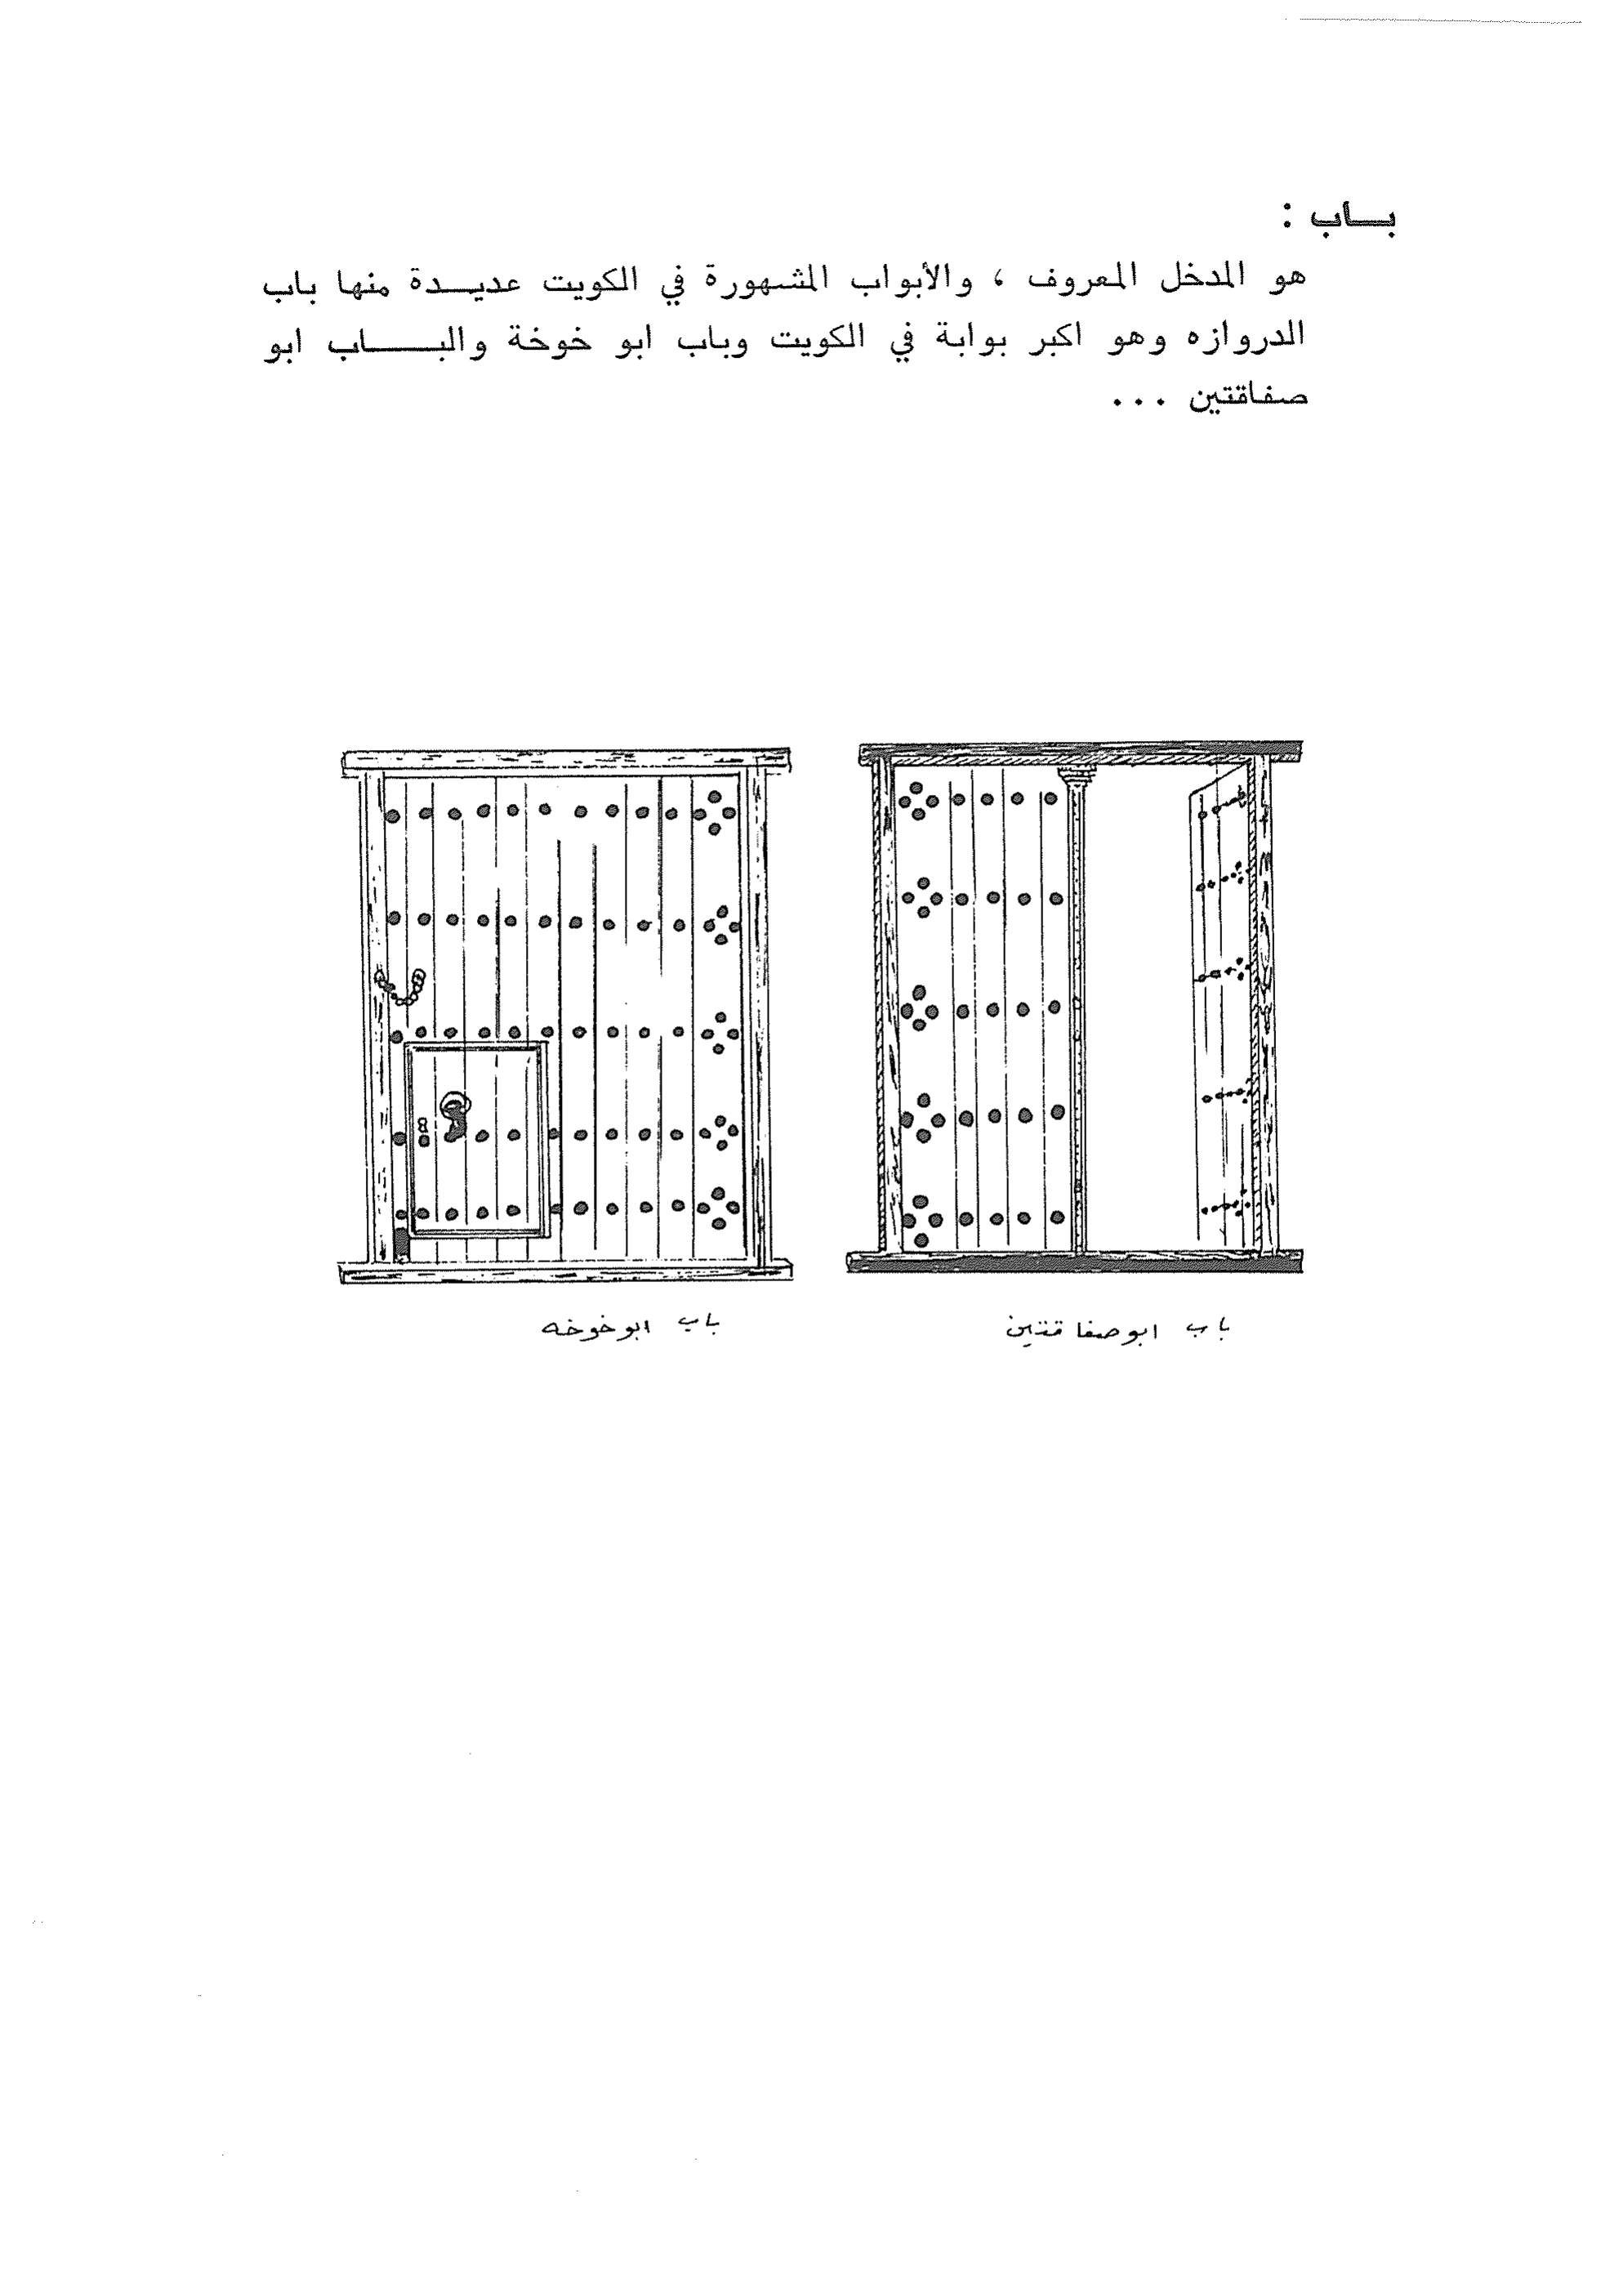 بـــاب :
هو المدخل المعروف ، والأبواب المشهورة في الكويت عديـــدة منها باب
الدروازه وهو اكبر بوابة في الكويت وباب ابو خوخة والبـــــاب ابو
صفاقتين ...
باب ابو صفاقتين
باب ابو خوخه